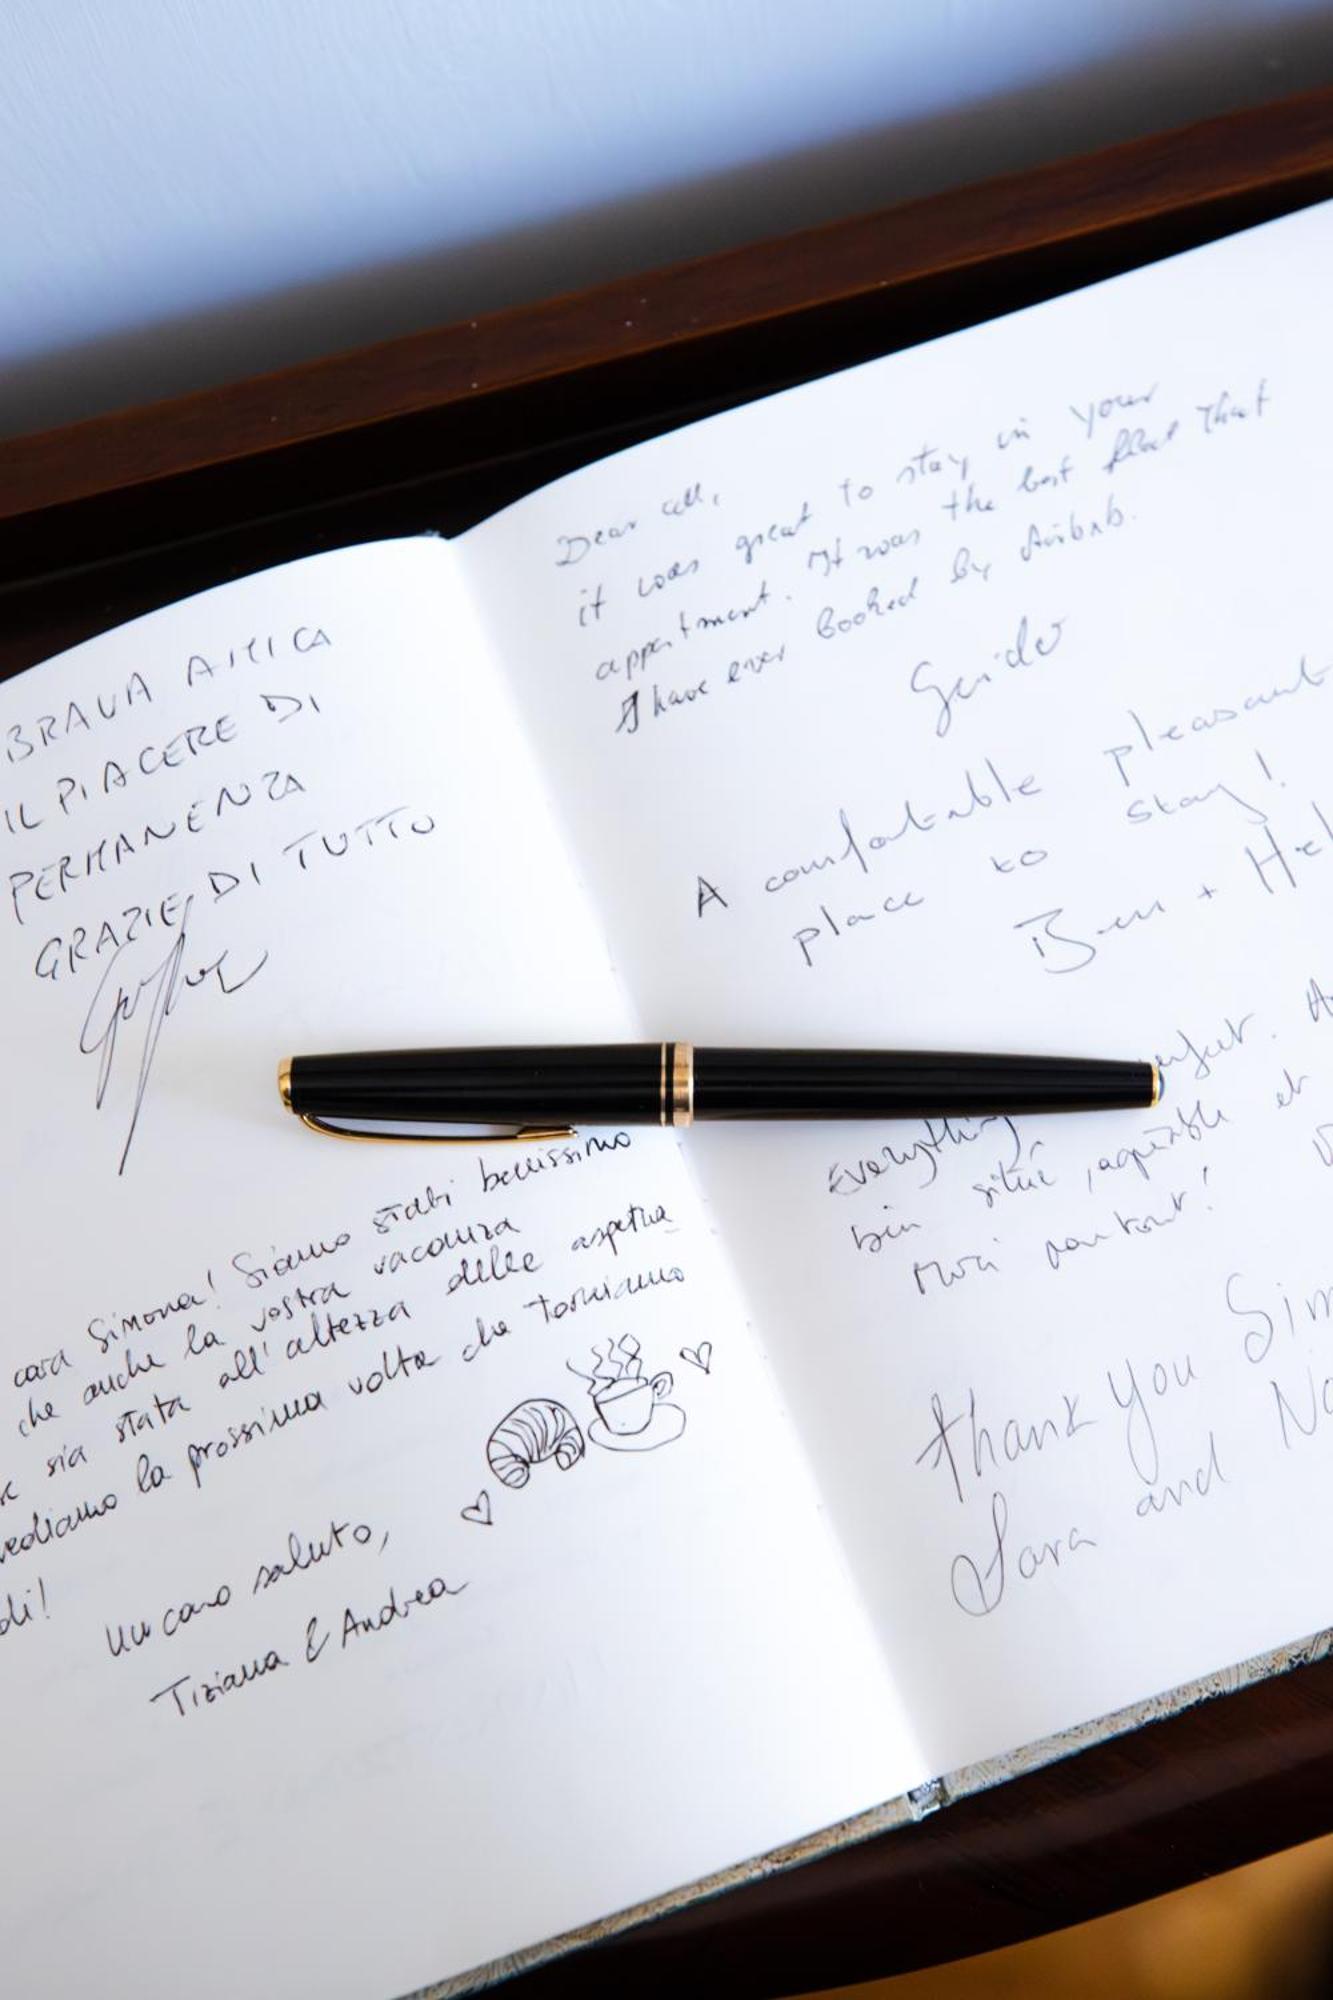 BRAVA AMICA
IL PIACERE DI
PERMANENZA
GRAZIE DI TUTTO
cara Simona! Siamo stati benissimo
che anche la vostra vacanza
sia stata all'altezza delle aspetta
vediamo la prossima volta che torniamo
di!
Un caro saluto,
Tiziana & Andrea
Dear all,
it was great to stay in your
appartment. It was the best flat that
I have ever booked by Airbnb.
Guido
A comfortable pleasant
place to stay!
Ben + Hel
Everything
bien situé, agréable et
Merci pour tout!
Thank you Sim
Sara and No